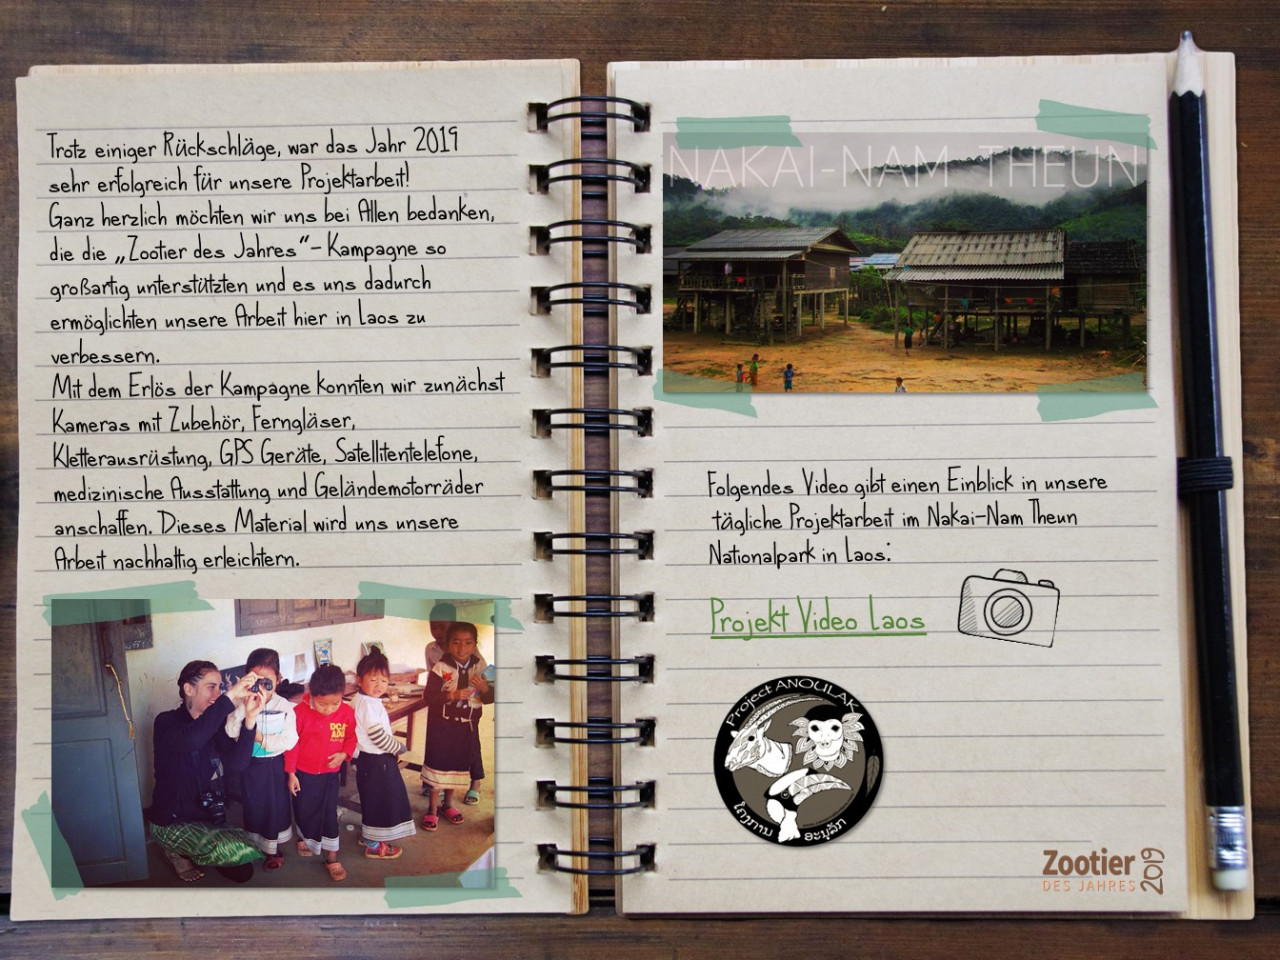 Trotz einiger Rückschläge, war das Jahr 2019
sehr erfolgreich für unsere Projektarbeit!
Ganz herzlich möchten wir uns bei Allen bedanken,
die die „Zootier des Jahres“-Kampagne so
großartig unterstützten und es uns dadurch
ermöglichten unsere Arbeit hier in Laos zu
verbessern.
Mit dem Erlös der Kampagne konnten wir zunächst
Kameras mit Zubehör, Ferngläser,
Kletterausrüstung, GPS Geräte, Satellitentelefone,
medizinische Ausstattung und Geländemotorräder
anschaffen. Dieses Material wird uns unsere
Arbeit nachhaltig erleichtern.
NAKAI-NAM THEUN
Folgendes Video gibt einen Einblick in unsere
tägliche Projektarbeit im Nakai-Nam Theun
Nationalpark in Laos:
Projekt Video Laos
Project ANOULAK
ໂຄງການ ອະນຸລັກ
Zootier
DES JAHRES
2019